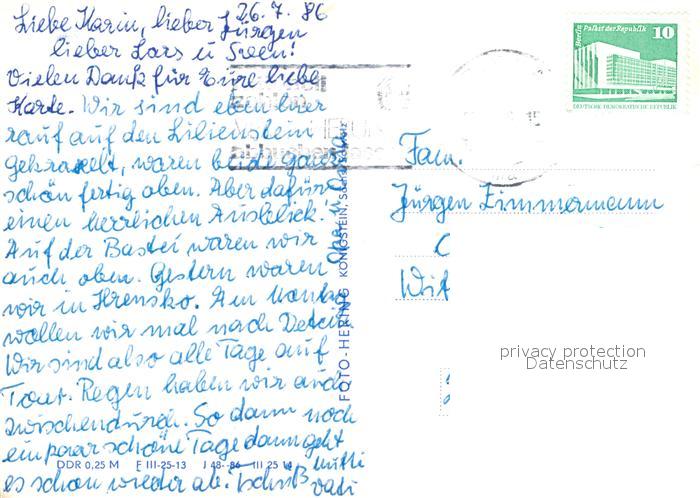 26. 7. 86
Liebe Karin, lieber Jürgen
lieber Lars u Sven!
Vielen Dank für Eure liebe
Karte. Wir sind eben hier
rauf auf den Lilienstein
gekraxelt, waren beide ganz
schön fertig oben. Aber dafür
einen herrlichen Ausblick.
Auf der Bastei waren wir
auch oben. Gestern waren
wir in Hrensko. Am
wollen wir mal nach
Wir sind also alle Tage auf
Tour. Regen haben wir auch
zwischendurch. So dann noch
ein paar schöne Tage dann geht
es schon wieder ab. Tschüß Mutti
Vati
Opa u
FOTO-HERING KÖNIGSTEIN, SÄCHS. SCHWEIZ
DDR 0,25 M F III-25-13 J 48--86 III 25 14
Berlin Palast der Republik 10
DEUTSCHE DEMOKRATISCHE REPUBLIK
Fam.
Jürgen Zimmermann
Wit
privacy protection
Datenschutz